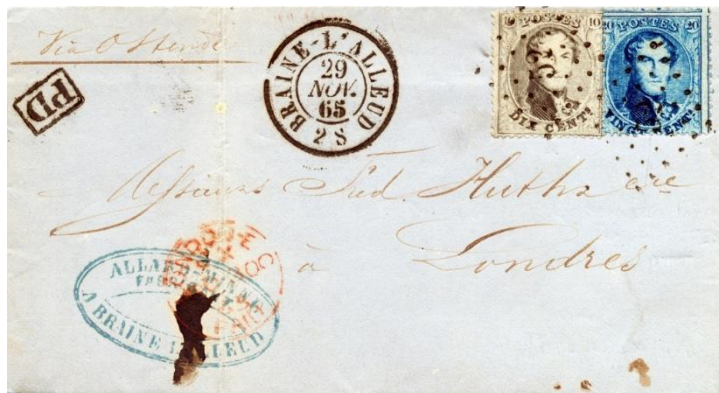 Via Ostende
PD
BRAINE-L'ALLEUD
29
NOV.
65
2 S
10 POSTES 10
DIX CENT.
20 POSTES 20
VINGT CENT.
Messieurs Fréd. Huth &
à Londres
ALLARD
A BRAINE L'ALLEUD